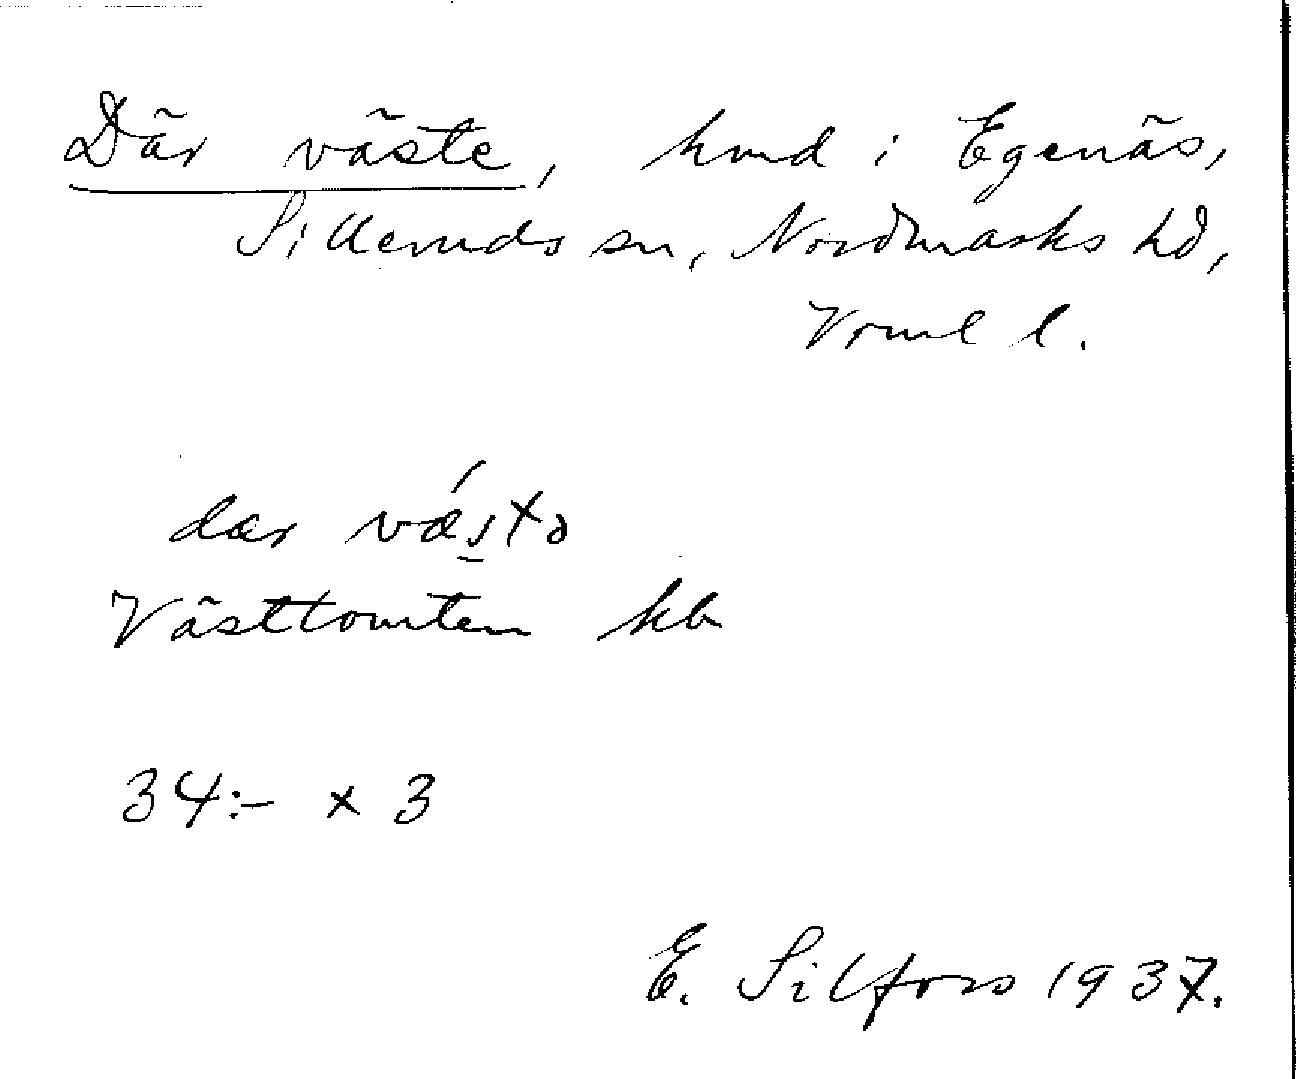 Där väste, hmd i Egenäs,
Silleruds sn, Nordmarks hd,
Vrml l.
dær vǽstə
Västtomten kb
34:- x 3
E. Silfors 1937.